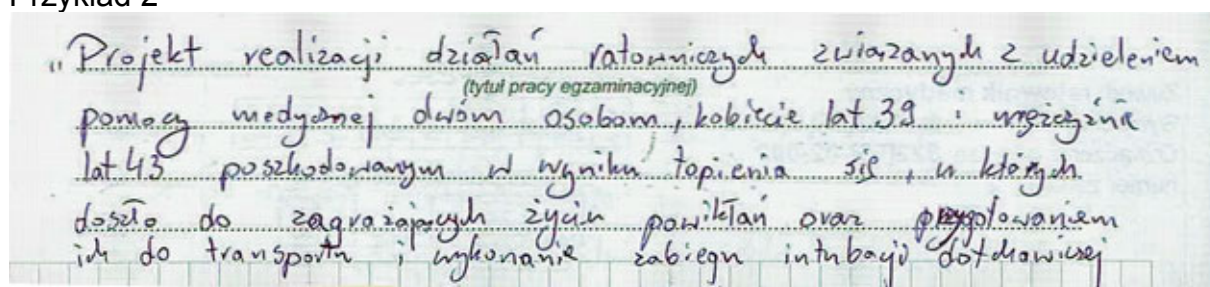 Przykład 2
„Projekt realizacji działań ratowniczych związanych z udzieleniem
(tytuł pracy egzaminacyjnej)
pomocy medycznej dwóm osobom, kobiecie lat 39 i mężczyźnie
lat 43 poszkodowanym w wyniku topienia się, u których
doszło do zagrażających życiu powikłań oraz przygotowaniem
ich do transportu i wykonanie zabiegu intubacji dotchawiczej